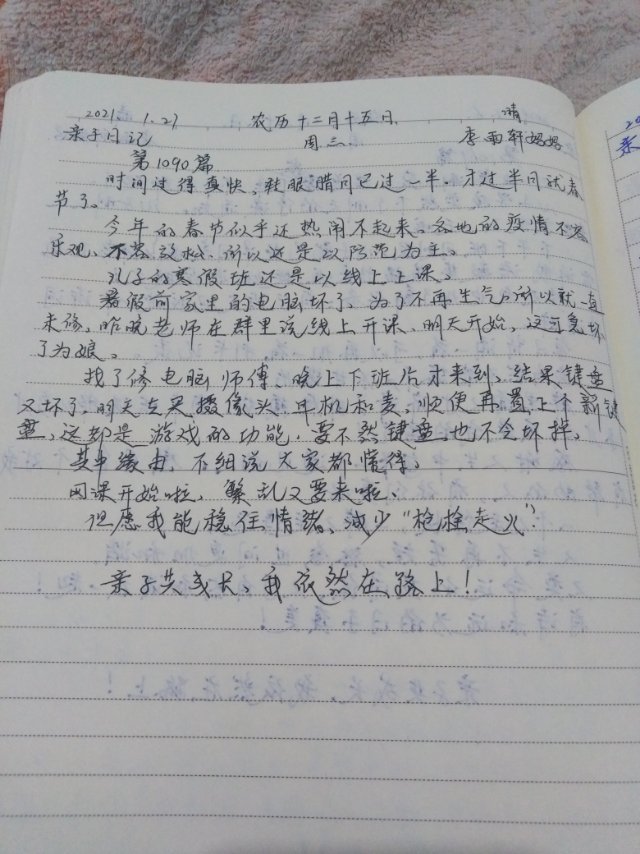 2021. 1. 27 农历十二月十五日 晴
亲子日记 周三 李雨轩妈妈
第1090篇
时间过得真快、转眼腊月已过一半、才过半月就春
节了。
今年的春节似乎还热闹不起来、各地的疫情不容
乐观、不容放松、所以还是以防范为主。
儿子的寒假班还是以线上上课。
暑假前家里的电脑坏了、为了不再生气、所以就一直
未修、昨晚老师在群里说线上开课、明天开始、这可急坏
了为娘。
找了修电脑师傅、晚上下班后才来到、结果键盘
又坏了、明天去买摄像头、耳机和麦、顺便再置上个新键
盘、这都是游戏的功能、要不然键盘也不会坏掉。
其中缘由、不细说大家都懂得。
网课开始啦、繁乱又要来啦、
但愿我能稳住情绪、减少“枪栓走火”。
亲子共成长、我依然在路上!